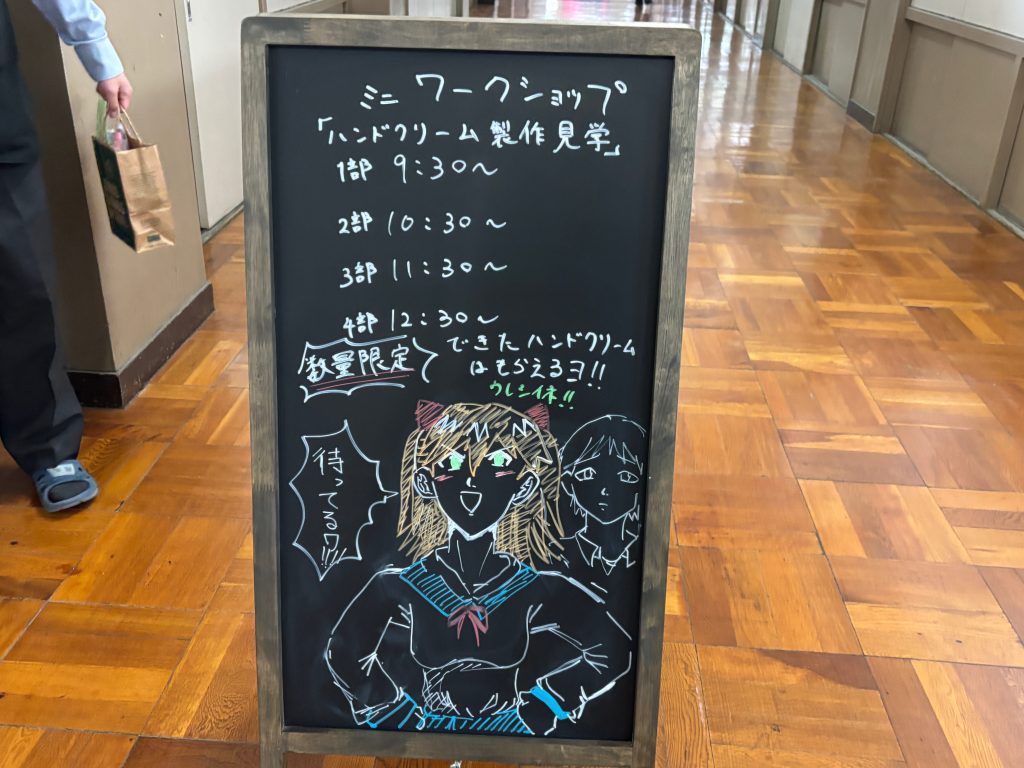 ミニ ワークショップ
「ハンドクリーム製作見学」
1部 9:30~
2部 10:30~
3部 11:30~
4部 12:30~
数量限定
できたハンドクリーム
はもらえるヨ!!
ウレシイ!!
待ってるワ!!